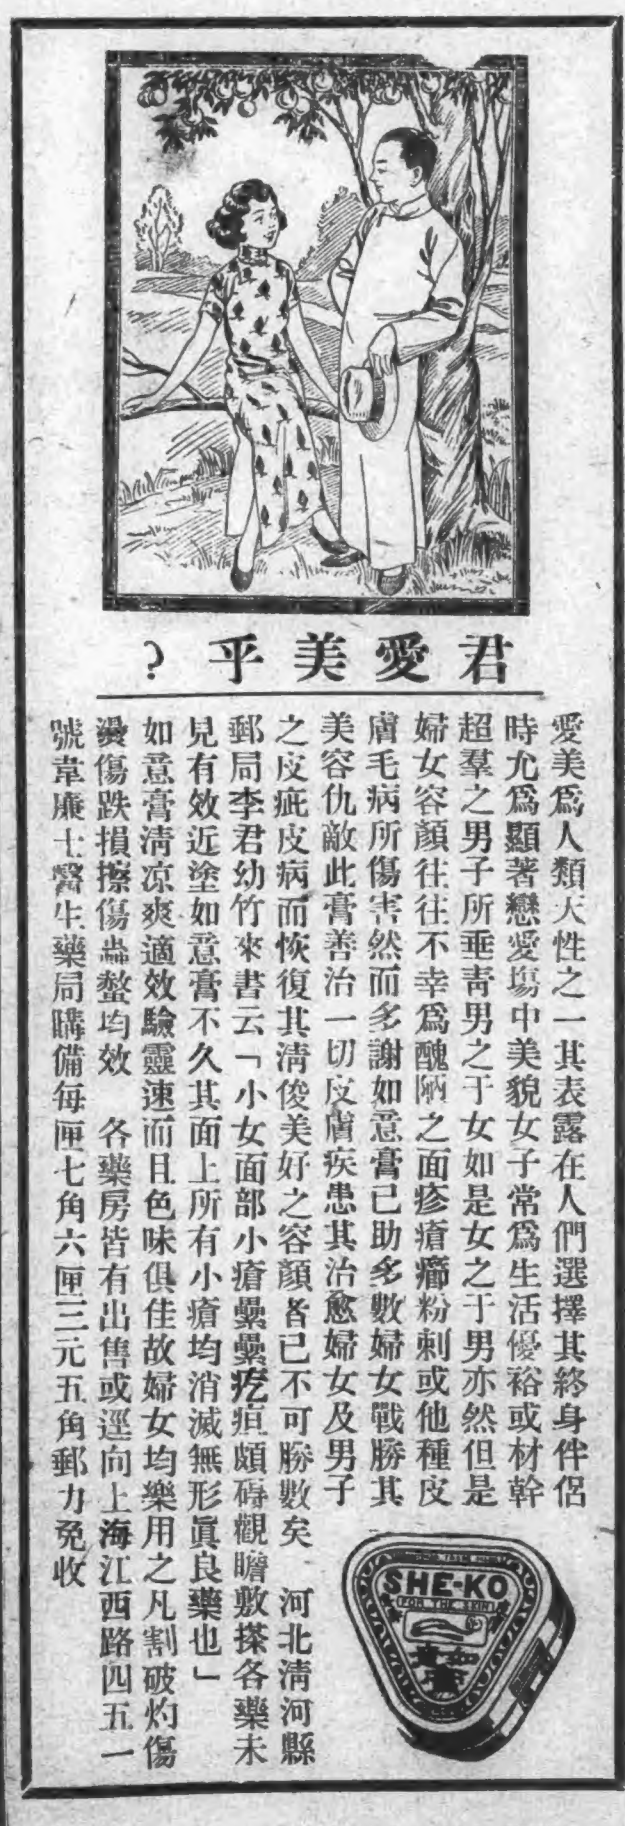 君愛美乎?
愛美爲人類天性之一其表露在人們選擇其終身伴侶
時尤爲顯著戀愛塲中美貌女子常爲生活優裕或材幹
超羣之男子所垂靑男之于女如是女之于男亦然但是
婦女容顏往往不幸爲醜陋之面疹瘡癤粉刺或他種皮
膚毛病所傷害然而多謝如意膏已助多數婦女戰勝其
美容仇敵此膏善治一切皮膚疾患其治愈婦女及男子
之皮疵皮病而恢復其淸俊美好之容顏者已不可勝數矣 河北淸河縣
郵局李君幼竹來書云「小女面部小瘡纍纍疙疸頗碍觀瞻敷搽各藥未
見有效近塗如意膏不久其面上所有小瘡均消滅無形眞良藥也」
如意膏淸凉爽適效驗靈速而且色味俱佳故婦女均樂用之凡割破灼傷
燙傷跌損擦傷蟲螫均效 各藥房皆有出售或逕向上海江西路四五一
號韋廉士醫生藥局購備每匣七角六匣三元五角郵力免收
SHE-KO
FOR THE SKIN
如意膏